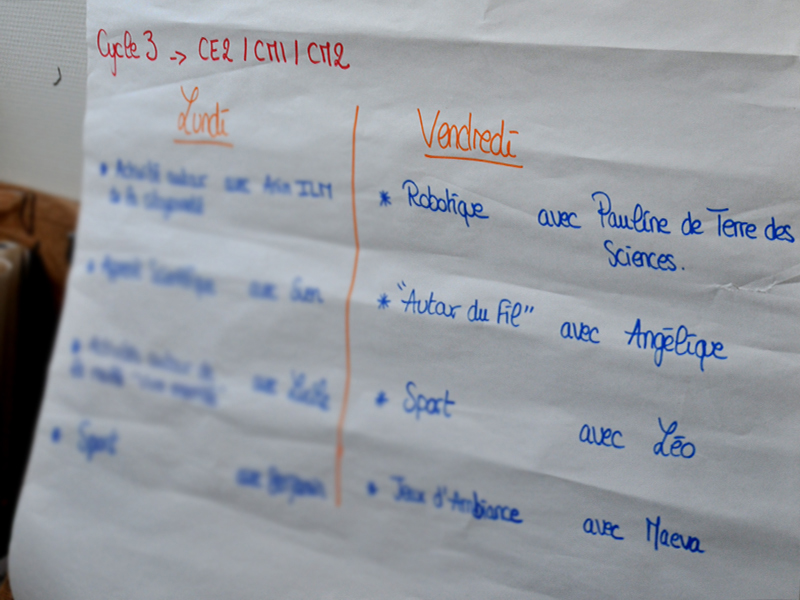 Cycle 3 → CE2 / CM1 / CM2
Lundi
* Activité autour avec Asia ILM
de la citoyenneté
* avec
* Activités autour de
avec
* Sport
avec Benjamin
Vendredi
* Robotique avec Pauline de Terre des
Sciences.
* "Autour du Fil" avec Angélique
* Sport avec Léo
* Jeux d'Ambiance avec Maeva